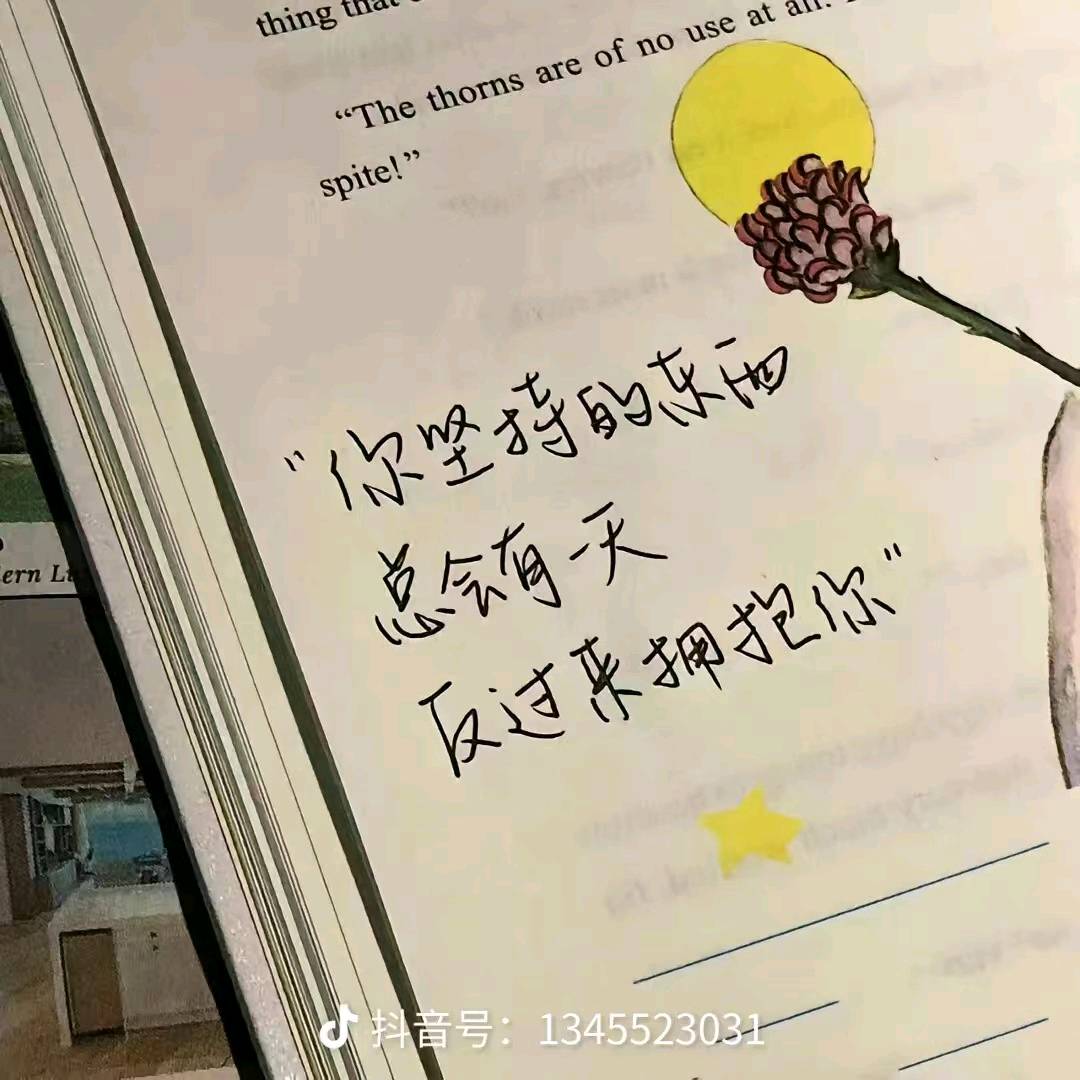 thing that
“The thorns are of no use at all.
spite!”
“你坚持的东西
总会有一天
反过来拥抱你”
ern L
抖音号：1345523031